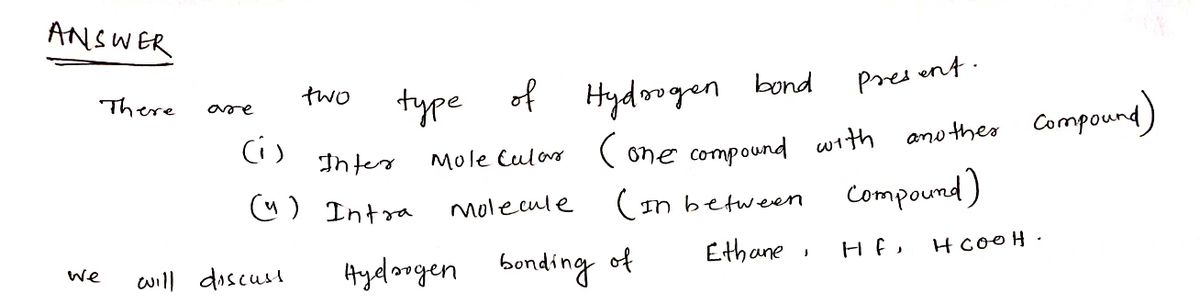 ANSWER
There are two type of Hydrogen bond present.
(i) Inter Molecular (one compound with another compound)
(ii) Intra molecule (In between compound)
we will discuss Hydrogen bonding of Ethane, HF, HCOOH.